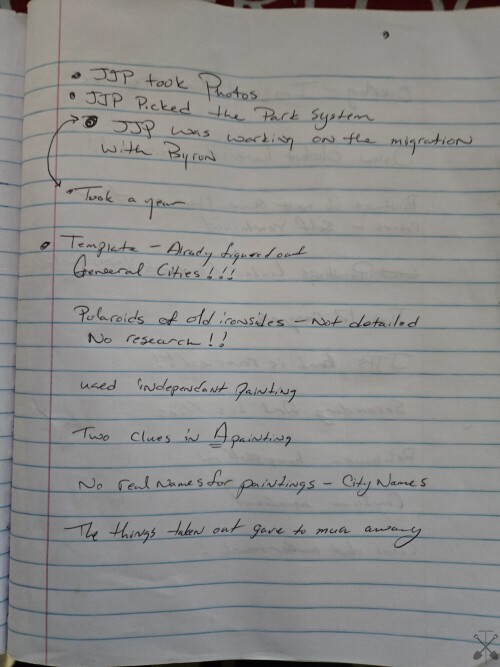 • JJP took Photos
• JJP Picked the Park System
• JJP was working on the migration
with Byron
• Took a year
• Template - Alrady figured out
General Cities!!!
Polaroids of old ironsides - Not detailed
No research!!
used independant painting
Two clues in A painting
No real Names for paintings - City Names
The things taken out gave to much away